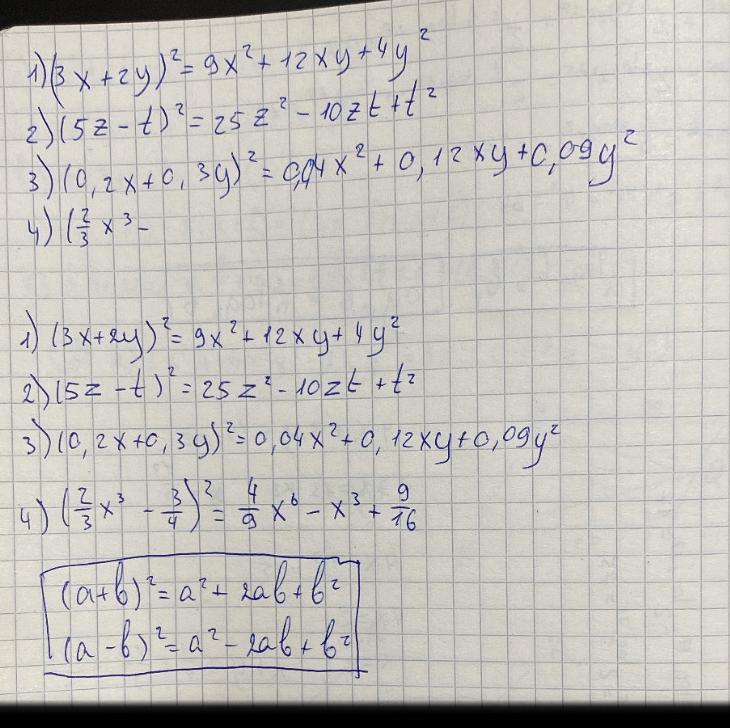 1) (3x+2y)² = 9x² + 12xy + 4y²
2) (5z - t)² = 25z² - 10zt + t²
3) (0,2x+0,3y)² = 0,04x² + 0,12xy + 0,09y²
4) (2/3 x³ -
1) (3x+2y)² = 9x² + 12xy + 4y²
2) (5z - t)² = 25z² - 10zt + t²
3) (0,2x+0,3y)² = 0,04x² + 0,12xy + 0,09y²
4) (2/3 x³ - 3/4)² = 4/9 x⁶ - x³ + 9/16
(a+b)² = a² + 2ab + b²
(a-b)² = a² - 2ab + b²